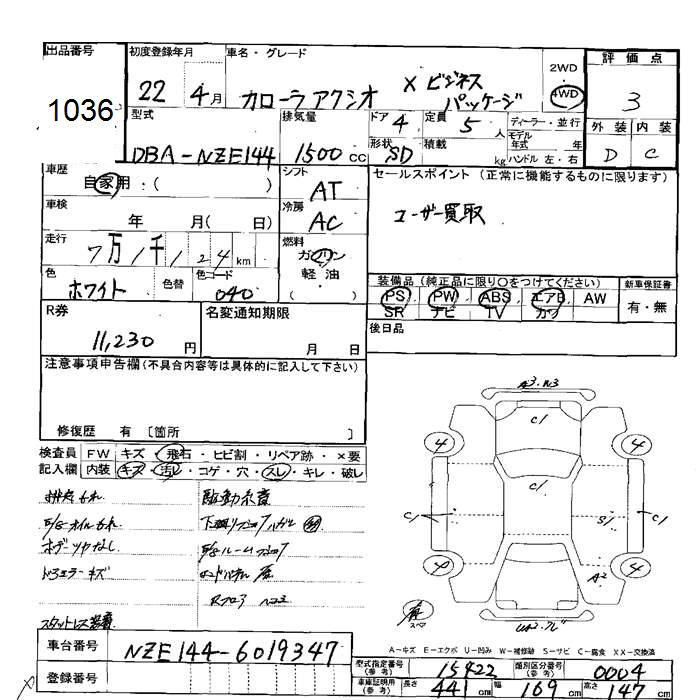 出品番号
1036
初度登録年月
22 4月
車名・グレード
カローラアクシオ X ビジネス
パッケージ
2WD
4WD
評価点
3
外装 内装
D C
型式
DBA-NZE144
排気量
1500 CC
ドア 4
形状 SD
定員 5 人
積載 kg
ディーラー・並行
モデル年式 年
ハンドル 左・右
車歴
自家用・( )
シフト
AT
セールスポイント (正常に機能するものに限ります)
ユーザー買取
車検
年 月( 日)
冷房
AC
走行
7万1千124km
燃料
ガソリン
軽・油
( )
色
ホワイト
色替
色コード
040
装備品(純正品に限り〇をつけてください)
PS PW ABS エアB AW
SR ナビ TV カワ
新車保証書
有・無
R券
11,230 円
名変通知期限
月 日
後日品
注意事項申告欄(不具合内容等は具体的に記入して下さい)
修復歴 有 〔箇所 〕
検査員 FW キズ・飛石・ヒビ割・リペア跡・×要
記入欄 内装 キズ・汚レ・コゲ・穴・スレ・キレ・破レ
ボデーツヤなし
ドアミラーキズ
スタットレス装着
A3.W3
C1
4 4
C1
C1 S1 C1
A2
4 4
スペア
A-キズ E-エクボ U-凹み W-補修跡 S-サビ C-腐食 XX-交換済
車台番号
NZE144-6019347
登録番号
型式指定番号
(参考)
15422
類別区分番号
(参考)
0004
車庫証明用
(参考)
長さ 441 cm
幅 169 cm
高さ 147 cm